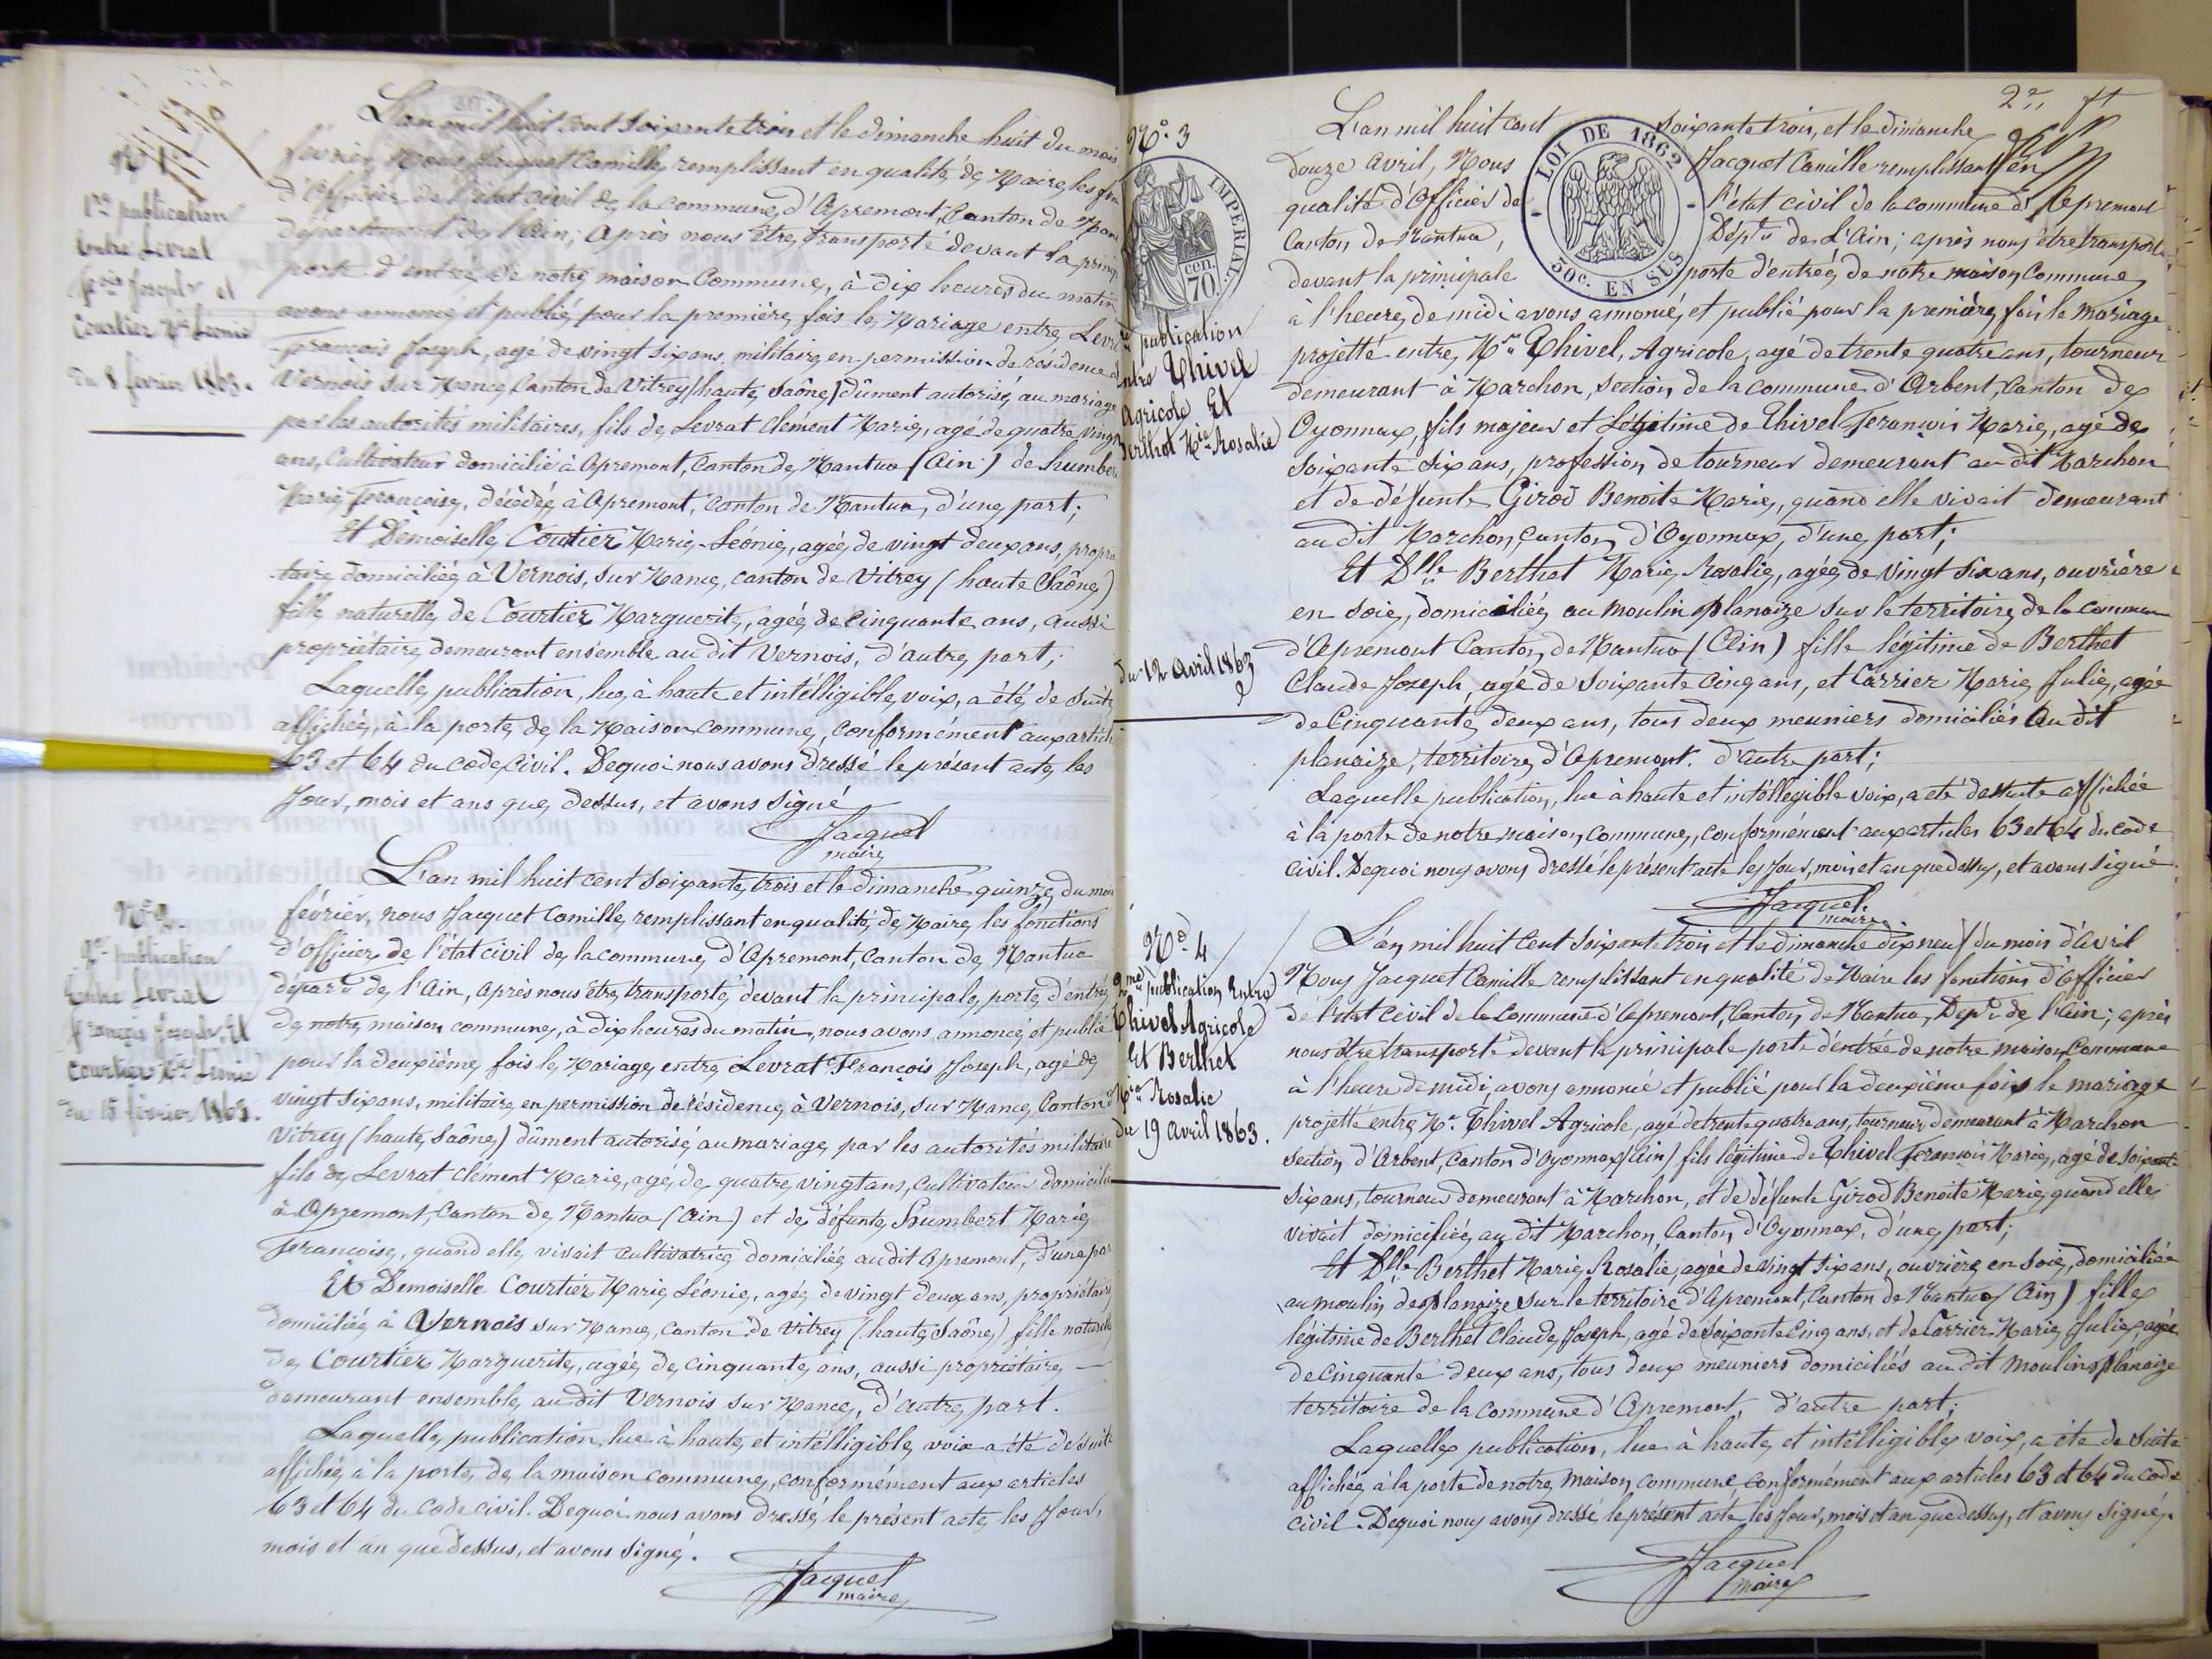 N° 1
1re publication
Entre Levrat
fçois Joseph et
Courtier Mie Léonie
du 8 février 1863.
L'an mil huit cent soixante trois et le dimanche huit du mois
février, Nous Jacquet Camille, remplissant en qualité de Maire, les
d'officier de l'état civil de la commune d'Apremont, Canton de
département de l'Ain; Après nous être transporté devant la
porte d'entrée de notre maison Commune, à dix heures du matin
avons annoncé et publié pour la première fois le Mariage entre
François Joseph, agé de vingt six ans, militaire en permission de résidence à
Vernois sur Mance, Canton de Vitrey (haute Saône) dûment autorisé au mariage
par les autorités militaires, fils de Levrat Clément Marie, agé de quatre vingt
ans, Cultivateur domicilié à Apremont, Canton de Mantua (Ain) de
Marie Françoise, décédée à Apremont, Canton de Mantua, d'une part;
Et Demoiselle Courtier Marie-Léonie, agée de vingt deux ans, propri
-taire domiciliée à Vernois, sur Mance, canton de Vitrey (haute Saône)
fille naturelle de Courtier Marguerite, agée de Cinquante ans, aussi
propriétaire demeurant ensemble au dit Vernois, d'autre part;
Laquelle publication, lue, à haute et intélligible voix, a été de suite
affichée, à la porte de la Maison Commune, conformément aux articles
63 et 64 du code Civil. Dequoi nous avons dressé le présent acte les
Jour, mois et ans que dessus, et avons signé
Jacquet
maire
N° 2.
2e publication
Entre Levrat
françois Joseph, Et
Courtier Mie Léonie
du 15 février 1863.
L'an mil huit cent soixante trois et le dimanche quinze du mois
février, nous Jacquet Camille, remplissant en qualité de Maire les fonctions
d'officier de l'état civil de la commune d'Apremont, Canton de Mantua
départt de l'Ain, Après nous être transporté devant la principale porte d'entrée
de notre maison commune, à dix heures du matin, nous avons annoncé et publié
pour la deuxième fois le Mariage entre Levrat François Joseph, agé de
vingt six ans, militaire en permission de résidence à Vernois, sur Mance, Canton d
Vitrey (haute Saône) dûment autorisé au mariage par les autorités militaire
fils de Levrat Clément Marie, agé de quatre vingt ans, Cultivateur domicilié
à Apremont, Canton de Mantua (Ain) et de défunte Humbert Marie
Françoise, quand elle vivait cultivatrice domiciliée au dit Apremont, d'une par
Et Demoiselle Courtier Marie Léonie, agée de vingt deux ans, propriétaire
domiciliée à Vernois sur Mance, Canton de Vitrey (haute Saône) fille naturelle
de Courtier Marguerite, agée de cinquante ans, aussi propriétaire —
demeurant ensemble au dit Vernois sur Mance, d'autre part.
Laquelle publication, lue à haute et intélligible voix a été de suite
affichée, à la porte de la maison commune, conformément aux articles
63 et 64 du code civil. Dequoi nous avons dressé le présent acte les Jour,
mois et an que dessus, et avons signé.
Jacquet
maire
2e ft
N° 3
IMPERIAL
70 cen.
LOI DE 1862
50c. EN SUS
publication
Entre Thivel
Agricole Et
Berthet Mie Rosalie
du 12 Avril 1863
L'an mil huit cent soixante trois, et le dimanche
douze avril, Nous Jacquet Camille remplissant en
qualité d'Officier de l'état civil de la commune d'Apremont
Canton de Mantua, Dépt de L'Ain; après nous être transporté
devant la principale porte d'entrée de notre maison Commune
à l'heure de midi avons annoncé, et publié pour la première fois le mariage
projetté entre Mr Thivel, Agricole, agé de trente quatre ans, tourneur
demeurant à Marchon, section de la commune d'Arbent, Canton de
Oyonnax, fils majeur et Légitime de Thivel François Marie, agé de
soixante six ans, profession de tourneur demeurant au dit Marchon
et de défunte Girod Benoite Marie, quand elle vivait demeurant
au dit Marchon, Canton d'Oyonnax, d'une part;
Et Dlle Berthet Marie Rosalie, agée de vingt six ans, ouvrière
en soie, domiciliée au moulin planaize sur le territoire de la commune
d'Apremont Canton de Mantua (Ain) fille légitime de Berthet
Claude Joseph, agé de soixante Cinq ans, et Carrier Marie Julie, agée
de Cinquante deux ans, tous deux meuniers domiciliés Au dit
planaize, territoire d'Apremont. d'autre part;
Laquelle publication, lue à haute et intéllegible voix, a été de suite affichée
à la porte de notre maison commune, conformément aux articles 63 et 64 du code
civil. Dequoi nous avons dressé le présent acte les Jour, mois et an que dessus, et avons signé
Jacquet
maire
N° 4
2me publication Entre
Thivel Agricole
Et Berthet
Mie Rosalie
du 19 Avril 1863.
L'an mil huit Cent soixante trois et le dimanche dix neuf du mois d'Avril
Nous Jacquet Camille remplissant en qualité de Maire les fonctions d'Officier
de l'état Civil de la Commune d'Apremont, Canton de Mantua, Dépt de l'Ain; après
nous être transporté devant la principale porte d'entrée de notre maison Commune
à l'heure de midi, avons annoncé et publié pour la deuxième fois le mariage
projetté entre Mr Thivel Agricole, agé de trente quatre ans, tourneur demeurant à Marchon
section d'Arbent, Canton d'Oyonnax (Ain) fils légitime de Thivel François Marie, agé de soixante
six ans, tourneur demeurant à Marchon, et de défunte Girod Benoite Marie, quand elle
vivait domiciliée au dit Marchon, Canton d'Oyonnax, d'une part;
Et Dlle Berthet Marie Rosalie, agée de vingt six ans, ouvrière en soie, domiciliée
au moulin de planaize sur le territoire d'Apremont, Canton de Mantua (Ain) fille
légitime de Berthet Claude Joseph, agé de soixante Cinq ans, et de Carrier Marie Julie, agée
de Cinquante deux ans, tous deux meuniers domiciliés au dit moulin planaize
territoire de la commune d'Apremont, d'autre part;
Laquelle publication, lue à haute et intélligible voix, a été de suite
affichée à la porte de notre maison commune conformément aux articles 63 et 64 du code
civil. Dequoi nous avons dressé le présent acte les Jour, mois et an que dessus, et avons signé.
Jacquet
maire